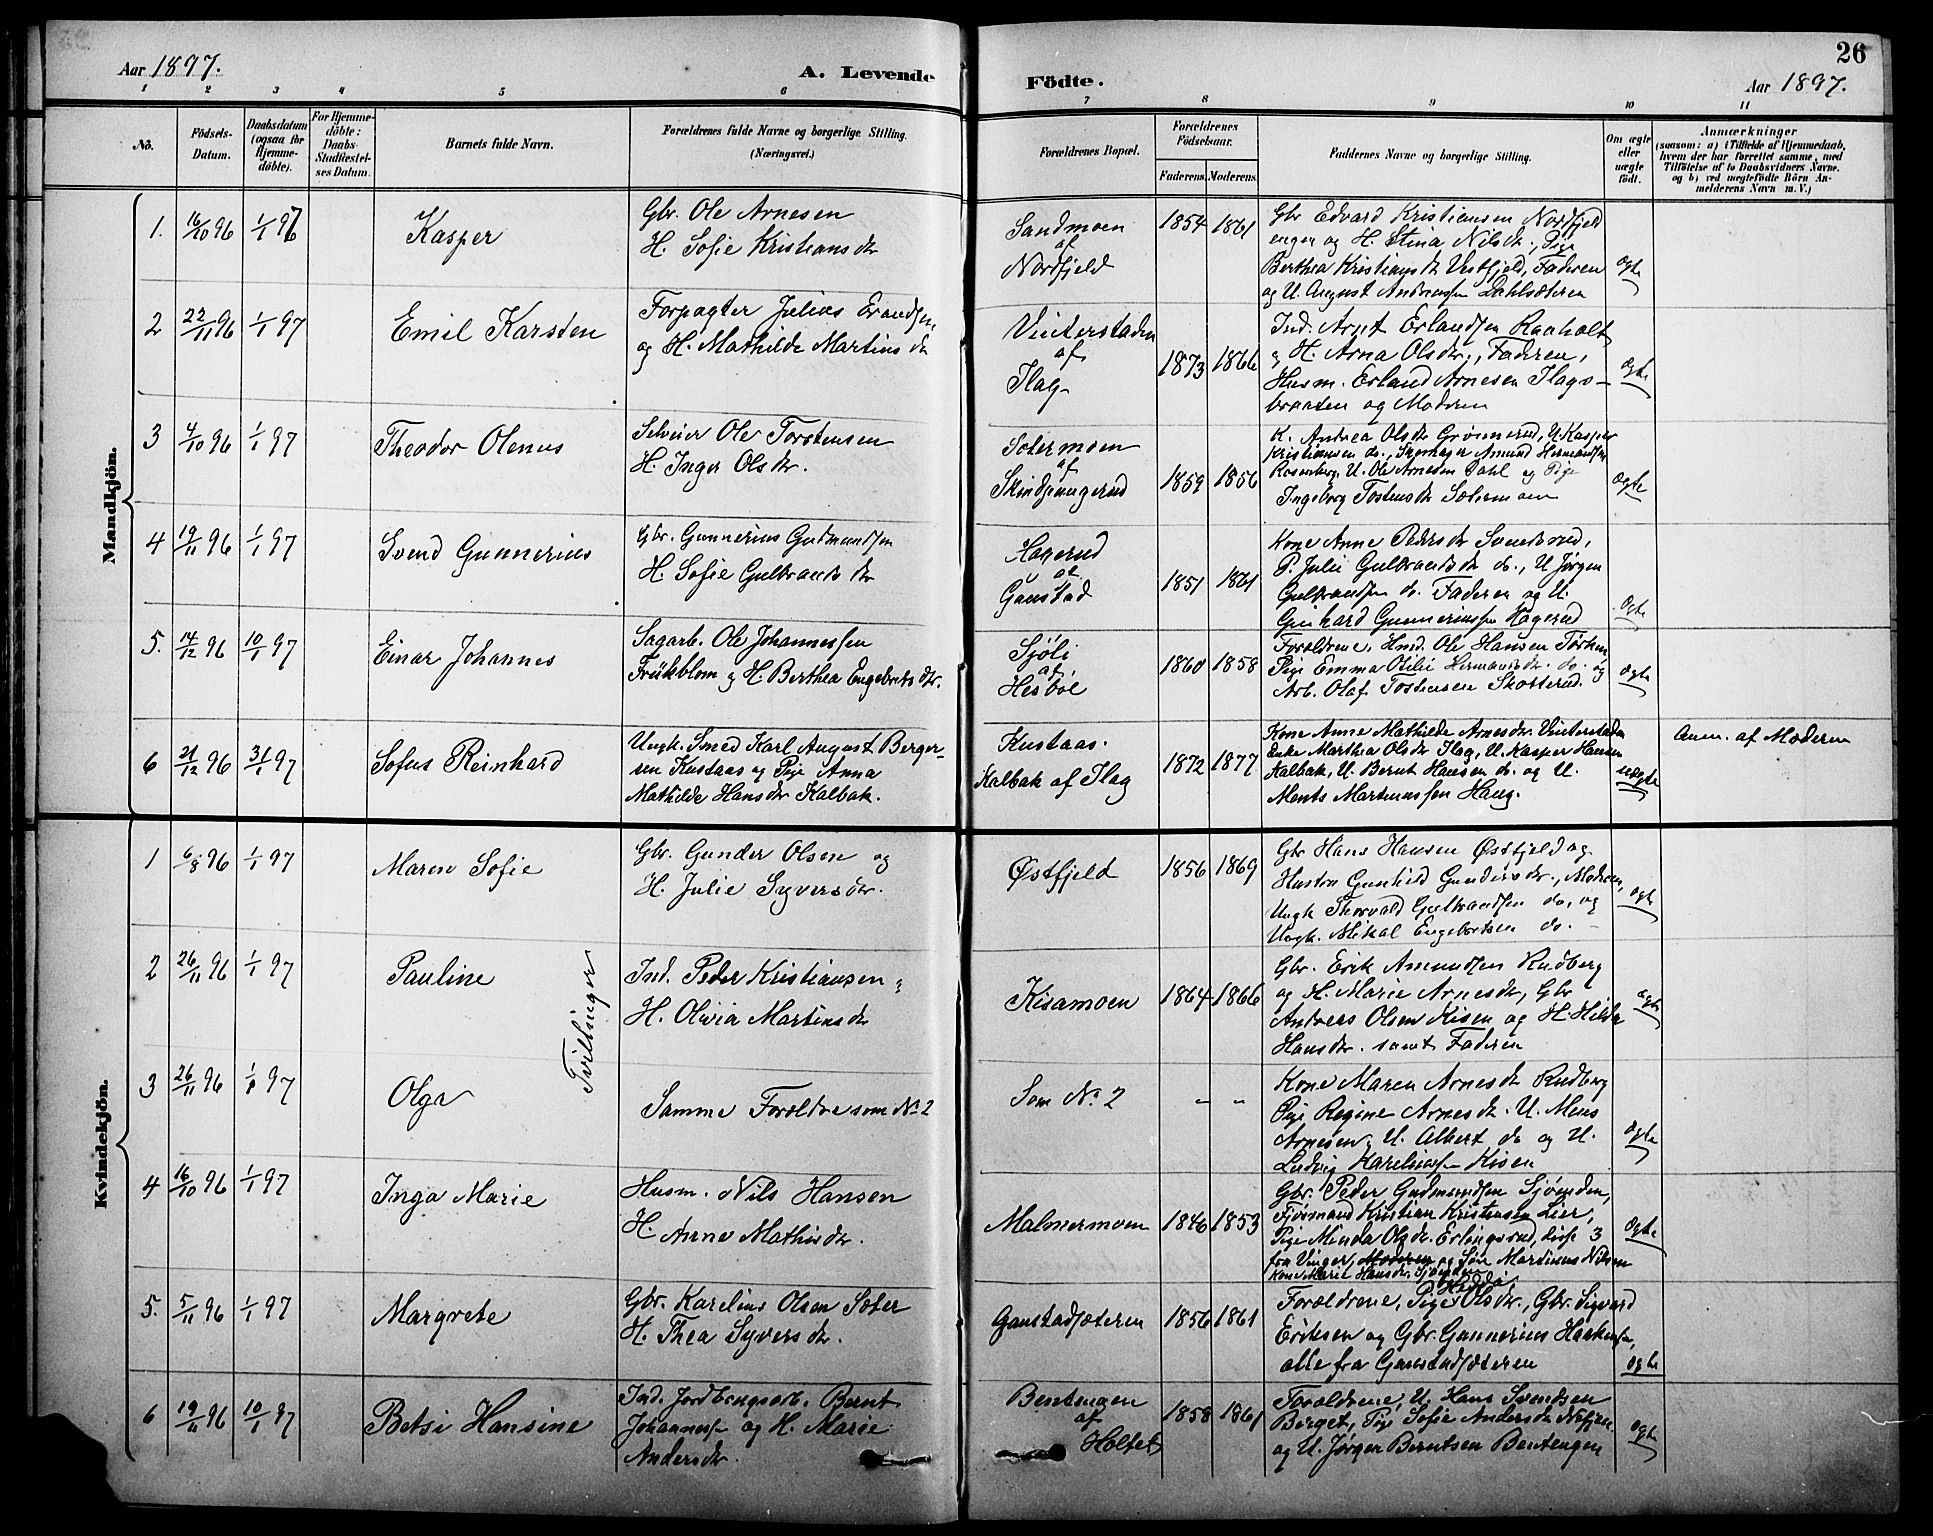 26
Aar 1897.
A. Levende
Födte.
Aar 1897.
1 2 3 4 5 6 7 8 9 10 11
No.
Födsels-
Datum.
Daabsdatum
(ogsaa for
Hjemme-
döbte).
For Hjemme-
döbte:
Daabs-
Stadfæstel-
ses Datum.
Barnets fulde Navn.
Forældrenes fulde Navne og borgerlige Stilling.
(Næringsvei.)
Forældrenes Bopæl.
Forældrenes
Födselsaar.
Faderens. Moderens.
Faddernes Navne og borgerlige Stilling.
Om ægte
eller
uægte
födt.
Anmærkninger
(saasom: a) i Tilfælde af Hjemmedaab,
hvem der har forrettet samme, med
Tilföielse af to Daabsvidners Navne.
og b) ved uægtefödte Börn An-
melderens Navn m. V.)
Mandkjön.
1. 16/10 96 1/1 97 Kasper
Gbr. Ole Arnesen
H. Sofie Kristiansdr
Sandmoen
af
Nordfjeld
1854 1861
Gbr Edvard Kristiansen Nordfjeld
engen og H. Stina Nilsdr., Pige
Berthea Kristiansdr Vestfjeld, Faderen
og U. August Andreassen Dahlsæteren
ægte
2 22/11 96 1/1 97 Emil Karsten
Forpagter Julius
og H. Mathilde Martinsdr
Vinterstaden
af
Ilag
1873 1866
Ind. Arnt Erlandsen Raaholt
og H. Arna Olsdr., Faderen,
Husm. Erland Arnesen Ilags-
braaten og Moderen
ægte
3 4/10 96 1/1 97 Theodor Olenus
Selveier Ole Torstensen
H. Inger Olsdr.
Sætermoen
af
1859 1856
K. Andrea Olsdr Grønnerud, U. Kasper
Kristiansen do., Skomager Amund Hermandsen
Rosenberg, U. Ole Arnesen Dahl og Pige
Ingeborg Tostensdr Sætermoen
ægte
4 19/11 96 1/1 97 Svend Gunnerius
Gbr. Gunnerius Gudmundsen
H. Sofie Gulbrandsdr
Hagerud
af
Gaustad
1851 1861
Kone Anne Pedersdr Svendsrud,
P. Julie Gulbrandsdr do., U Jørgen
Gulbrandsen do. Faderen og U.
Gunneriussen Hagerud
ægte
5. 14/12 96 10/1 97 Einar Johannes
Sagarb. Ole Johannessen
og H. Berthea Engebretsdr.
Sjøli
af
Hesbøl
1860 1858
Forældrene, Ole Hansen
Pige Emma Otilie Hermansdr. do. og
Arb. Olaf Tostensen Skotterud.
ægte
6 21/12 96 31/1 97 Sofus Reinhard
Ungk. Smed Karl August Berger-
sen Kustaas og Pige Anna
Mathilde Hansdr Kalbak.
Kustaas.
Kalbak af Ilag
1872 1877
Kone Anne Mathilde Arnesdr. Vinterstaden
Enke Martha Olsdr Ilag, U. Kasper Hansen
Kalbak, U. Bernt Hansen do. og U.
Ments Martinussen Haug.
uægte
Anm. af Moderen
Kvindekjön.
1 6/8 96 1/1 97 Maren Sofie
Gbr. Gunder Olsen og
H. Julie Syversdr.
Østfjeld
1856 1869
Gbr Hans Hansen Østfjeld og
Hustru Gunhild Gundersdr., Moderen,
Ungk Thorvald Gulbrandsen do. og
Ungk. Mikal Engebretsen do.
ægte
2 26/11 96 1/1 97 Pauline
Tvillinger
Ind. Peder Kristiansen
H. Olivia Martinsdr
Kisamoen
1864 1866
Gbr. Erik Amundsen Rudberg
og H. Marie Arnesdr, Gbr
Andreas Olsen Kisen og H. Hilda
Hansdr. samt Faderen
ægte
3 26/11 96 1/1 97 Olga
Samme Forældre som No 2
Som No 2
" "
Kone Maren Arnesdr Rudberg
Pige Regine Arnesdr. U. Mens
Arnesen, U. Albert do og U.
Ludvig Kareliussen Kisen
ægte
4 16/10 96 1/1 97 Inga Marie
Husm. Nils Hansen
H Anne Mathisdr.
Malmermoen
1846 1853
Gbr. Peder Gudmundsen Sjøenden,
Kristian Kristensen Lier,
Pige Minda Olsdr. Erlingsrud, disse 3
fra Vinger, Moderen og Søn Martinus Nilsen
Kone Marie Hansdr. Sjøenden
ægte
5. 5/11 96 1/1 97 Margrete
Gbr. Karelius Olsen Sæter
H. Thea Syversdr.
Gaustadsæteren
1856 1861
Forældrene, Pige Hilda Olsdr., Gbr. Sigvard
Eriksen og Gbr. Gunnerius Haakensen,
alle fra Gaustadsæteren
ægte
6 19/11 96 10/1 97 Betsi Hansine
Ind. Jordbrugsarb. Bernt
Johannessen og H. Marie
Andersdr.
Bentengen
af
Holtet
1858 1861
Forældrene, U. Hans Svendsen
Berget, Pige Sofie Andersdr
og U. Jørgen Berntsen Bentengen
ægte